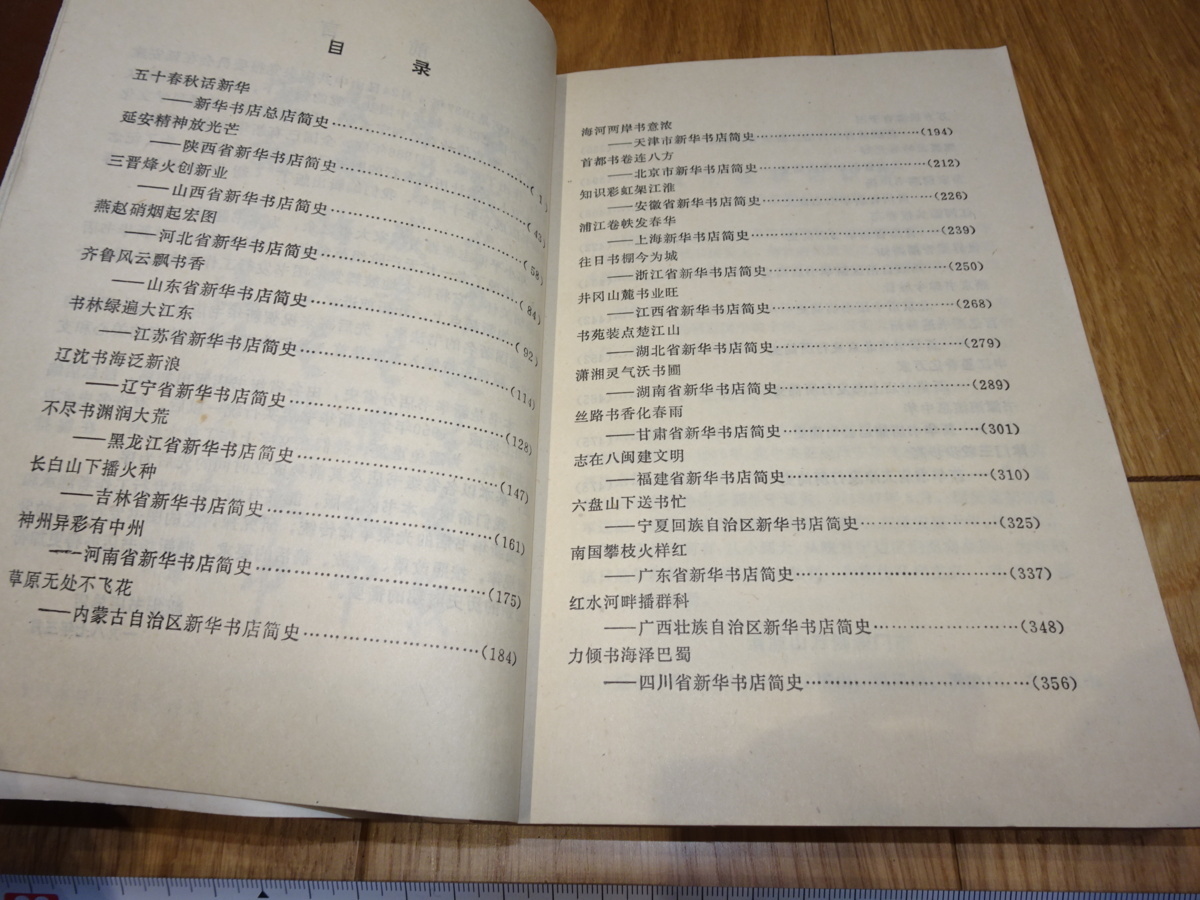 目 录
五十春秋话新华
——新华书店总店简史……………………( 1 )
延安精神放光芒
——陕西省新华书店简史……………………( 43)
三晋烽火创新业
——山西省新华书店简史……………………( 58)
燕赵硝烟起宏图
——河北省新华书店简史……………………( 84)
齐鲁风云飘书香
——山东省新华书店简史……………………( 92)
书林绿遍大江东
——江苏省新华书店简史……………………(114)
辽沈书海泛新浪
——辽宁省新华书店简史……………………(128)
不尽书渊润大荒
——黑龙江省新华书店简史……………………(147)
长白山下播火种
——吉林省新华书店简史……………………(161)
神州异彩有中州
——河南省新华书店简史……………………(175)
草原无处不飞花
——内蒙古自治区新华书店简史……………………(184)
海河两岸书意浓
——天津市新华书店简史……………………(194)
首都书卷连八方
——北京市新华书店简史……………………(212)
知识彩虹架江淮
——安徽省新华书店简史……………………(226)
浦江卷帙发春华
——上海新华书店简史……………………(239)
往日书棚今为城
——浙江省新华书店简史……………………(250)
井冈山麓书业旺
——江西省新华书店简史……………………(268)
书苑装点楚江山
——湖北省新华书店简史……………………(279)
潇湘灵气沃书圃
——湖南省新华书店简史……………………(289)
丝路书香化春雨
——甘肃省新华书店简史……………………(301)
志在八闽建文明
——福建省新华书店简史……………………(310)
六盘山下送书忙
——宁夏回族自治区新华书店简史……………………(325)
南国攀枝火样红
——广东省新华书店简史……………………(337)
红水河畔播群科
——广西壮族自治区新华书店简史……………………(348)
力倾书海泽巴蜀
——四川省新华书店简史……………………(356)